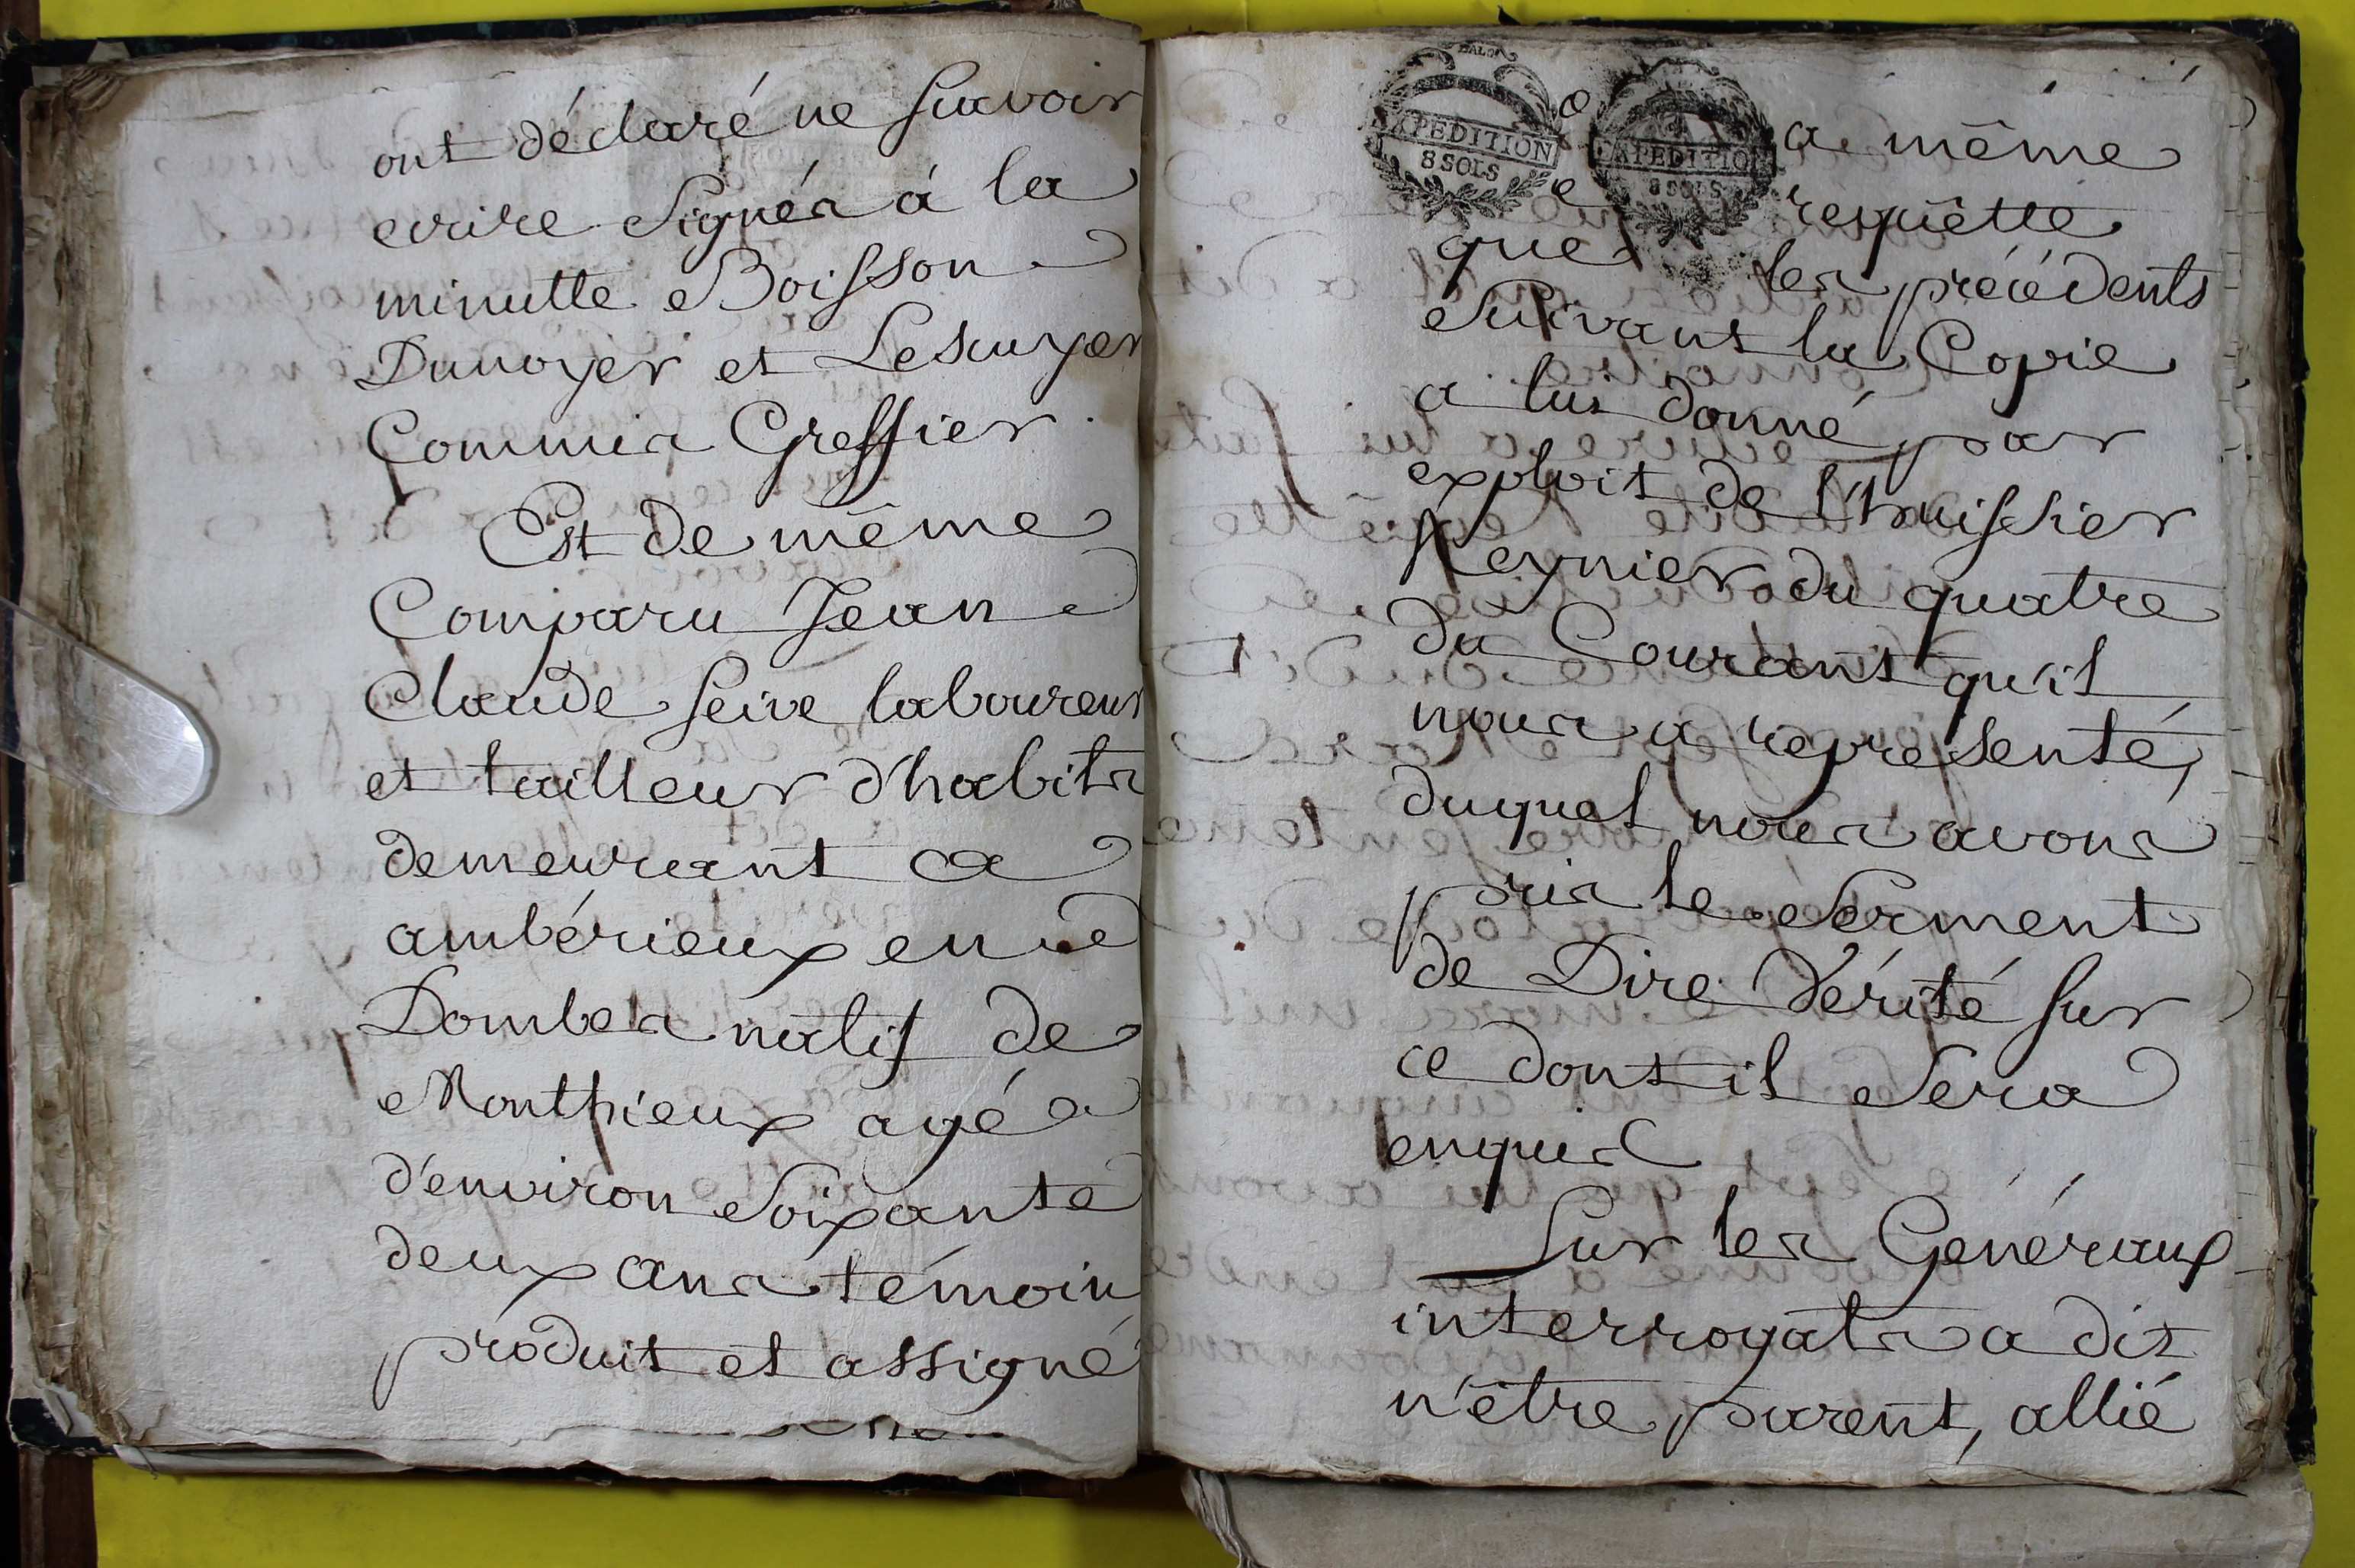 ont déclaré ne scavoir
ecrire signés á la
minutte Boisson
Dunoyer et Lescuyer
Commis Greffier
Est de même
Comparu Jean
Claude seive laboureur
et tailleur d'habits
demeurant a
ambérieux en
Dombes natif de
Monthieux agé
d'environ soixante
deux ans témoin
produit et assigné
EXPEDITION
8 SOLS
EXPEDITION
8 SOLS
a même
requêtte
que les précédents
suivant la Copie
a lui donné par
exploit de l'huissier
Reynier du quatre
du Courant qu'il
nous a representé,
duquel nous avons
pris le serment
de Dire Vérité sur
ce dont il sera
enquis
Sur les Généraux
interrogats a dit
n'être parent, allié